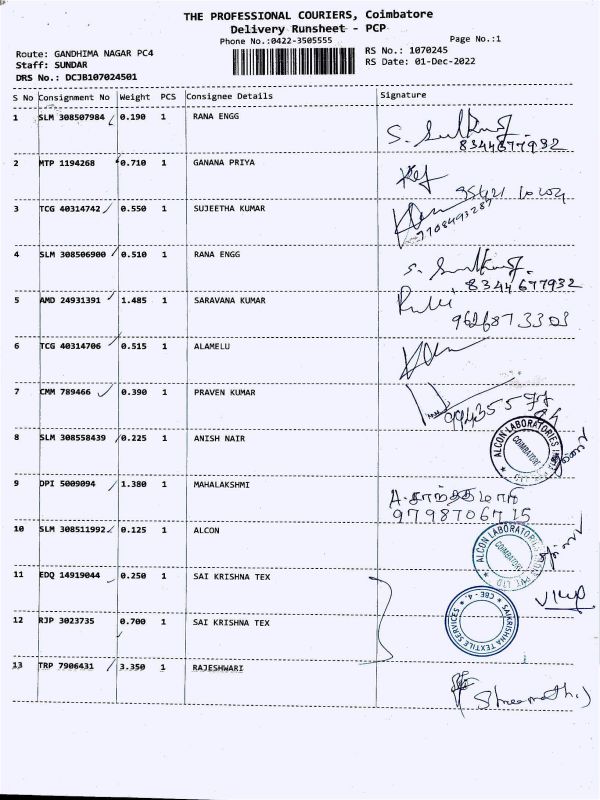 THE PROFESSIONAL COURIERS, Coimbatore
Delivery Runsheet - PCP
Phone No.:0422-3505555
Page No.:1
Route: GANDHIMA NAGAR PC4
RS No.: 1070245
Staff: SUNDAR
RS Date: 01-Dec-2022
DRS No.: DCJB107024501
S No Consignment No Weight PCS Consignee Details Signature
1 SLM 308507984 0.190 1 RANA ENGG
8344677932
2 MTP 1194268 0.710 1 GANANA PRIYA
3 TCG 40314742 0.550 1 SUJEETHA KUMAR
4 SLM 308506900 0.510 1 RANA ENGG
8344677932
5 AMD 24931391 1.485 1 SARAVANA KUMAR
6 TCG 40314706 0.515 1 ALAMELU
7 CMM 789466 0.390 1 PRAVEN KUMAR
8 SLM 308558439 0.225 1 ANISH NAIR
ALCON LABORATORIES
COIMBATORE
9 DPI 5009094 1.380 1 MAHALAKSHMI
9798706715
10 SLM 308511992 0.125 1 ALCON
ALCON LABORATORIES PVT. LTD
COIMBATORE
11 EDQ 14919044 0.250 1 SAI KRISHNA TEX
12 RJP 3023735 0.700 1 SAI KRISHNA TEX
SAIKRISHNA TEXTILE SERVICES
CBE-4.
13 TRP 7906431 3.350 1 RAJESHWARI